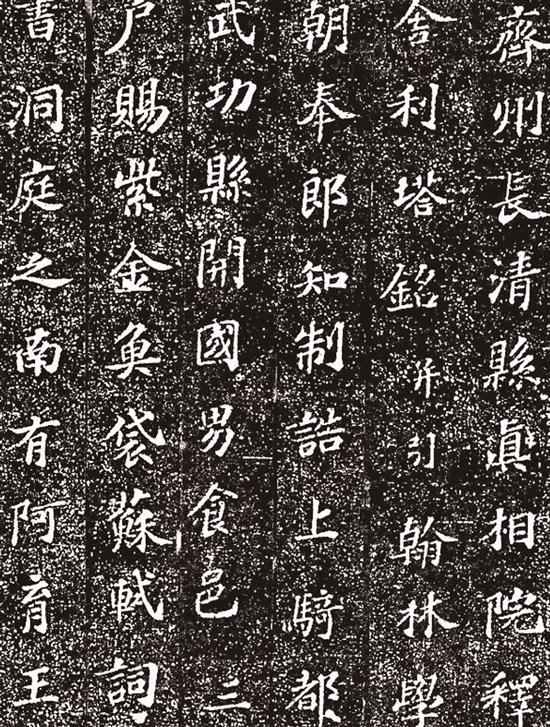 齊州長清縣眞相院釋
舍利塔銘并引翰林學
朝奉郎知制誥上騎都
武功縣開國男食邑三
户賜紫金魚袋蘇軾詞
書洞庭之南有阿育王